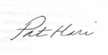 Pat Hari